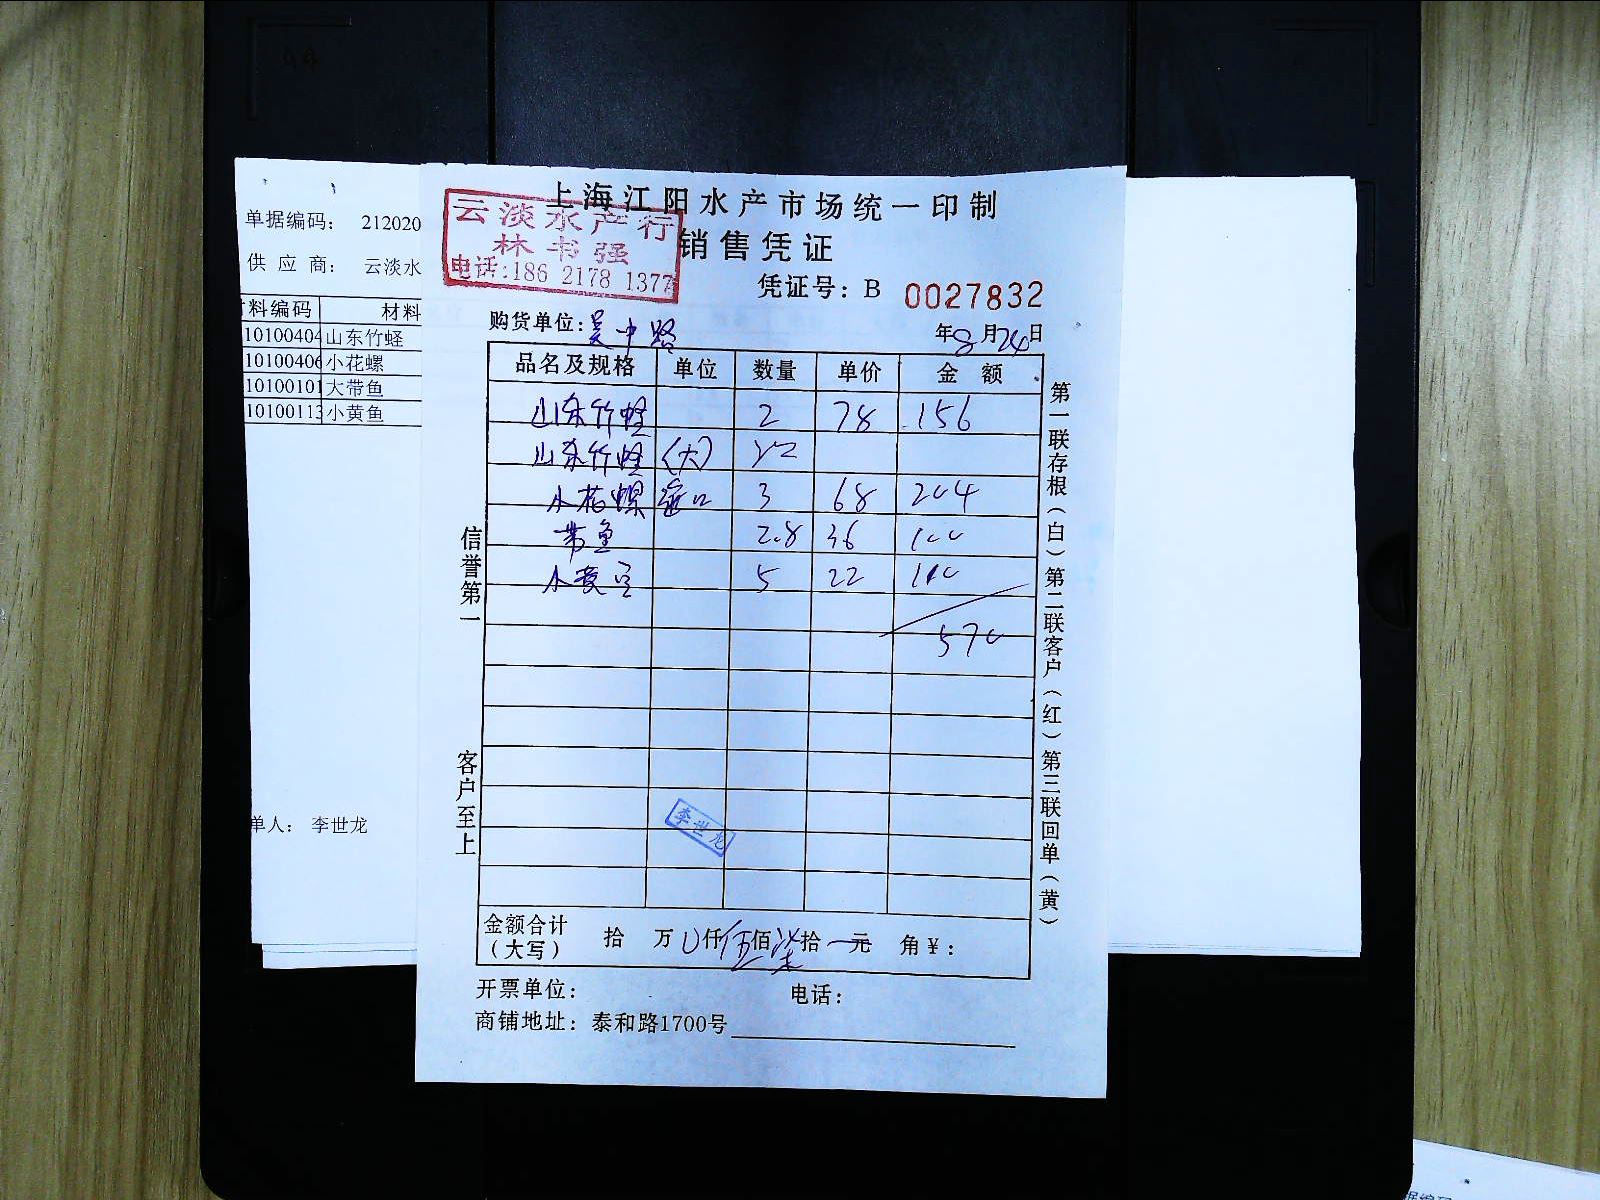 单据编码： 212020
供 应 商： 云淡水
料编码 材料
10100404 山东竹蛏
10100406 小花螺
10100101 大带鱼
10100113 小黄鱼
单人： 李世龙
上海江阳水产市场统一印制
销售凭证
云淡水产行
林书强
电话:186 2178 1377
凭证号：B 0027832
购货单位:吴中路
年8月24日
品名及规格 单位 数量 单价 金 额
山东竹蛏 2 78 156
山东竹蛏 (大)
小花螺 3 68 204
带鱼 2.8 36 100
小黄 5 22 110
570
李世龙
金额合计
（大写） 拾 万 仟伍佰柒拾 元 角¥：
开票单位： 电话：
商铺地址：泰和路1700号
信誉第一 客户至上
第一联存根（白）第二联客户（红）第三联回单（黄）